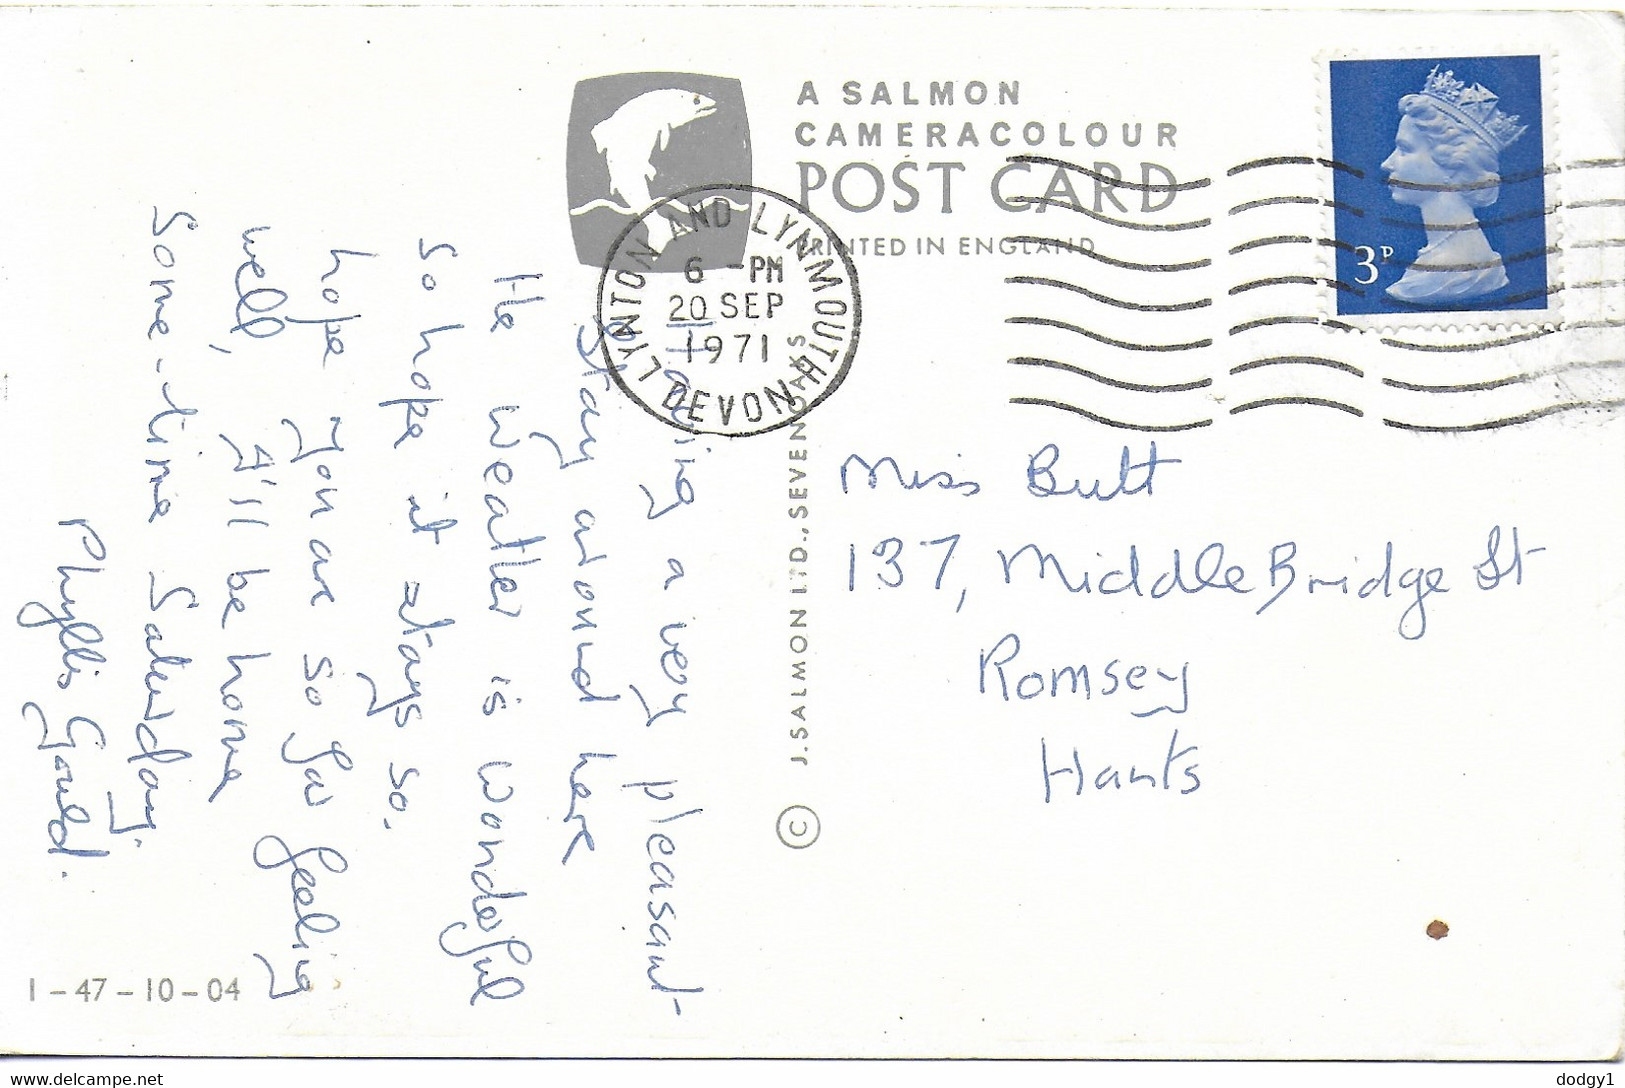 A SALMON
CAMERACOLOUR
POST CARD
PRINTED IN ENGLAND
3P
LYNTON AND LYNMOUTH
6 -PM
20 SEP
1971
DEVON
J. SALMON LTD., SEVENOAKS
©
Having a very pleasant
stay around here
the weather is wonderful
so hope it stays so.
hope you are so far feeling
well, I'll be home
Some-time Saturday.
Phyllis Gould.
Miss Butt
137, Middle Bridge St
Romsey
Hants
1-47-10-04
www.delcampe.net
dodgy1